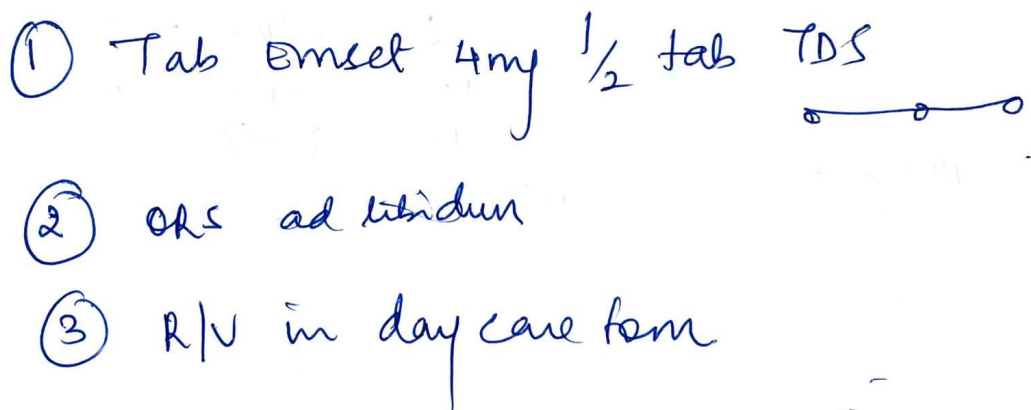 ① Tab Emset 4mg 1/2 tab TDS
② ORS ad libidum
③ R/V in day care tom